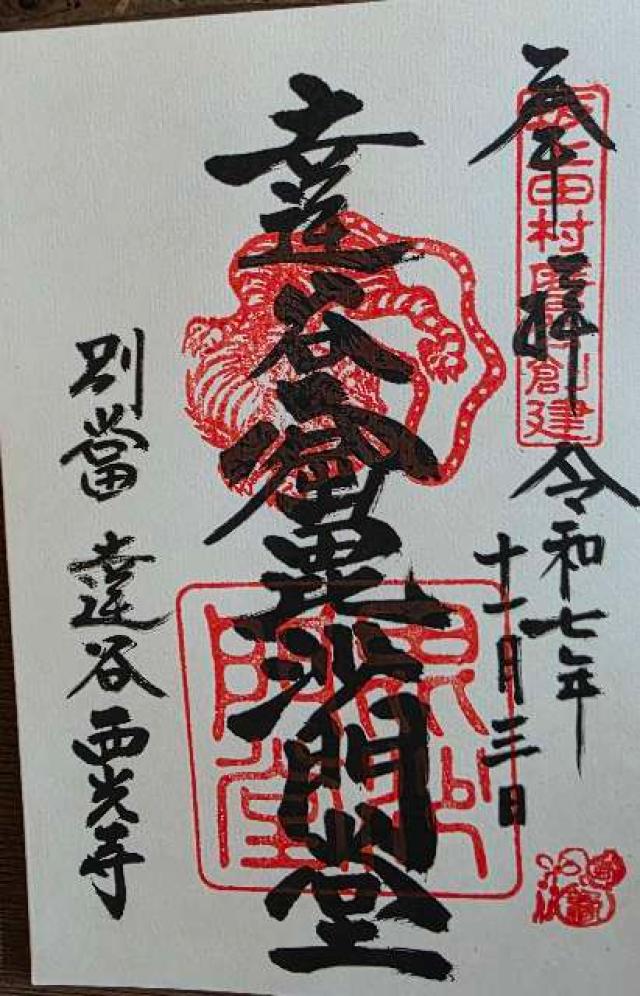 奉拝
坂上田村麿公創建
令和七年
十一月三日
達谷窟毘沙門堂
毘沙門堂
別當 達谷西光寺